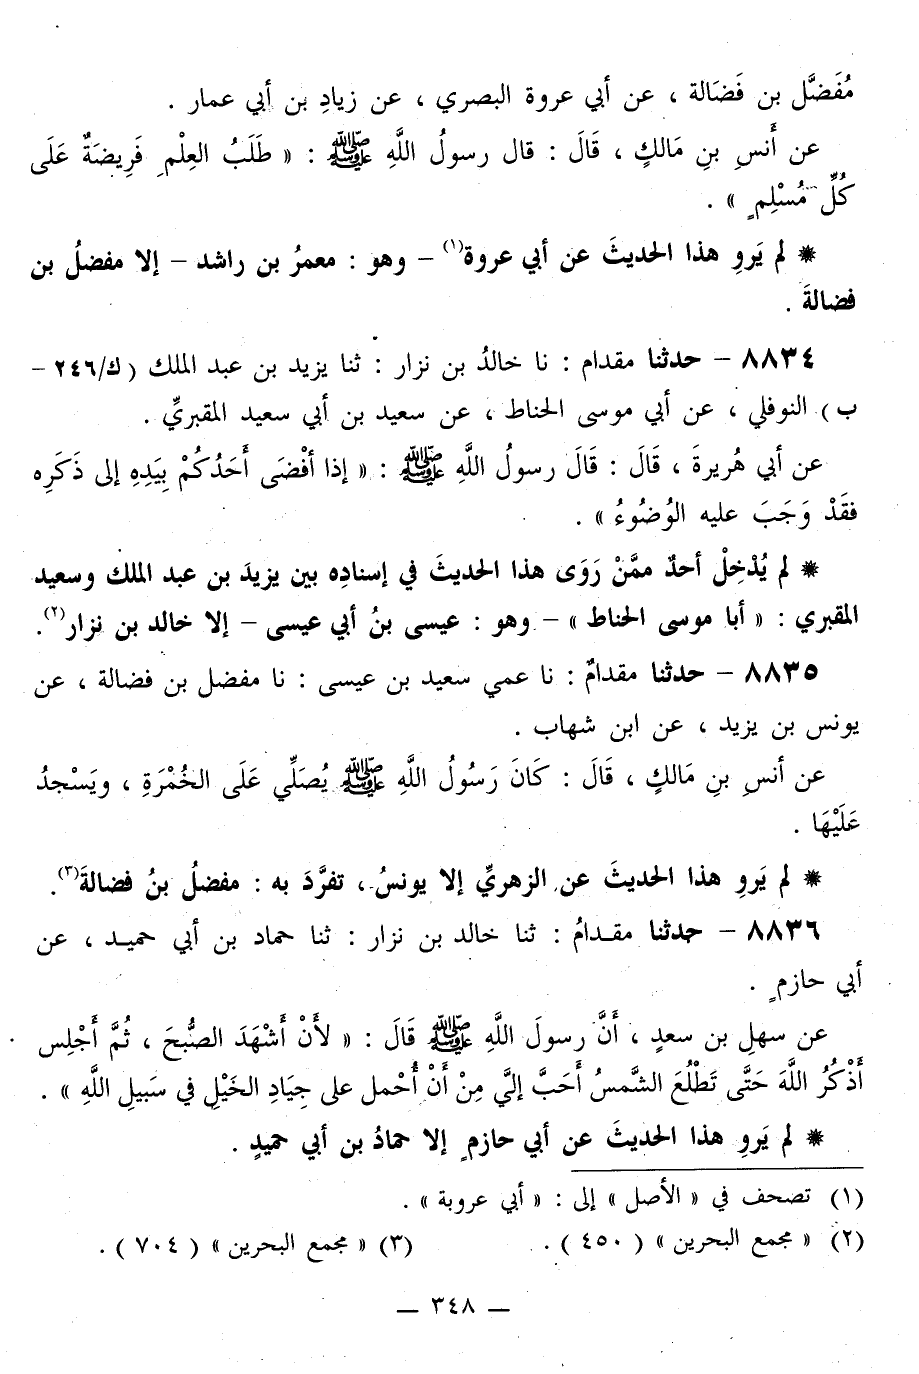 مُفَضَّل بن فَضَالة ، عن أبي عروة البصري ، عن زيادِ بن أبي عمار .
عن أَنسِ بنِ مَالكٍ ، قَالَ : قال رسولُ اللَّهِ ﷺ : « طَلَبُ العِلْمِ فَرِيضَةٌ عَلَى
كُلِّ مُسْلِمٍ » .
* لم يَروِ هذا الحديثَ عن أبي عروة(١) – وهو : معمرُ بن راشد – إلا مفضلُ بن
فضالةَ .
٨٨٣٤ – حدثنا مقدام : نا خالدُ بن نزار : ثنا يزيد بن عبد الملك ( ك/٢٤٦ –
ب ) النوفلي ، عن أبي موسى الحناط ، عن سعيد بن أبي سعيد المقبريِّ .
عن أبي هُريرةَ ، قَالَ : قَالَ رسولُ اللَّهِ ﷺ : « إذا أفْضَى أَحَدُكُمْ بِيَدِهِ إلى ذَكَرِه
فقَدْ وَجَبَ عليه الوُضُوءُ » .
* لم يُدْخِلْ أحدٌ ممَّنْ رَوَى هذا الحديثَ في إسنادِه بين يزيدَ بن عبد الملك وسعيد
المقبري : « أبا موسى الحناط » – وهو : عيسى بنُ أبي عيسى – إلا خالد بن نزار(٢).
٨٨٣٥ – حدثنا مقدامٌ : نا عمي سعيد بن عيسى : نا مفضل بن فضالة ، عن
يونس بن يزيد ، عن ابن شهاب .
عن أنسِ بنِ مَالكٍ ، قَالَ : كَانَ رَسُولُ اللَّهِ ﷺ يُصَلِّي عَلَى الخُمْرَةِ ، ويَسْجدُ
عَلَيْهَا .
* لم يَروِ هذا الحديثَ عن الزهريِّ إلا يونسُ ، تفرَّدَ به : مفضلُ بنُ فضالةَ(٣).
٨٨٣٦ – حدثنا مقـدامُ : ثنا خالد بن نزار : ثنا حماد بن أبي حميـد ، عن
أبي حازمٍ .
عن سهلِ بن سعدٍ ، أَنَّ رسولَ اللَّهِ ﷺ قَالَ : « لأَنْ أَشْهَدَ الصُّبحَ ، ثُمَّ أَجْلِس
أَذْكُرُ اللَّهَ حَتَّى تَطْلُعَ الشَّمسُ أَحَبَّ إليَّ مِنْ أَنْ أُحْمل على جِيَادِ الخَيْلِ في سَبيلِ اللَّهِ » .
* لم يَروِ هذا الحديثَ عن أبي حازمٍ إلا حمادُ بن أبي حميدٍ .
(١) تصحف في « الأصل » إلى : « أبي عروبة » .
(٢) « مجمع البحرين » ( ٤٥٠ ) . (٣) « مجمع البحرين » ( ٧٠٤ ) .
— ٣٤٨ —